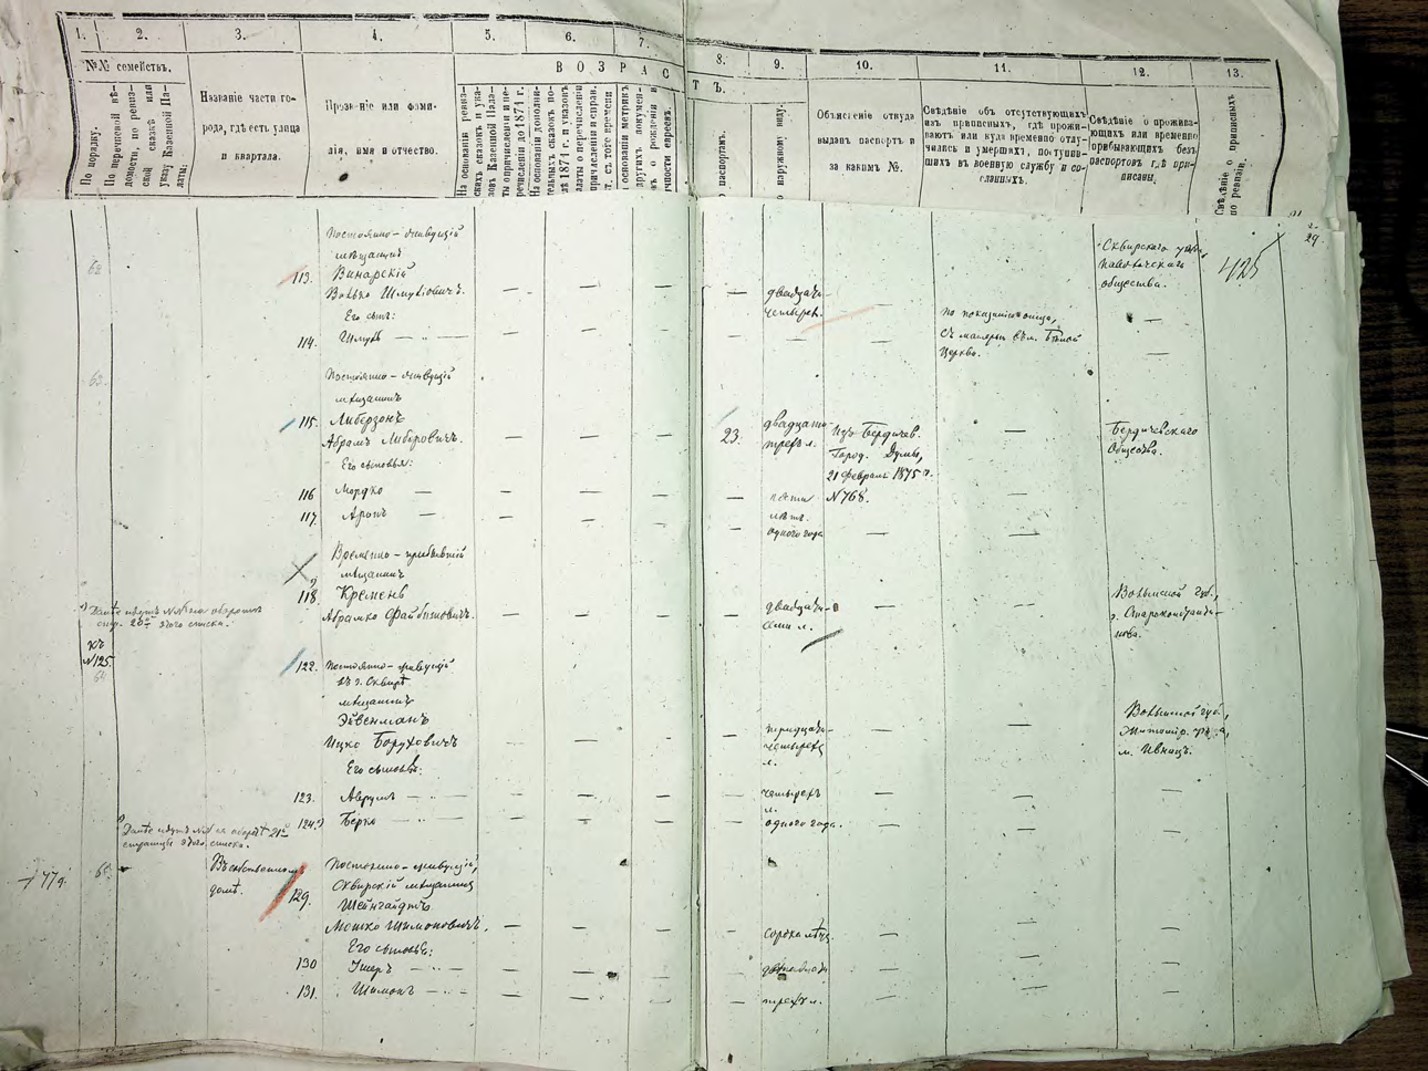 1. 2. 3. 4. 5. 6. 7. 8. 9. 10. 11. 12. 13.
№№ семействъ.
В О З Р А С Т Ъ.
По порядку.
По перечневой вѣ-
домости, по ревиз-
ской сказкѣ или
указу Казенной Па-
латы:
Названіе части го-
рода, гдѣ есть улица
и квартала.
Прозвніе или фами-
лія, имя и отчество.
На основаніи ревиз-
скихъ сказокъ и ука-
зовъ Казенной Пала-
ты о причисленіи и пе-
речисленіи до 1874 г.
На основаніи дополни-
тельныхъ сказокъ по-
слѣ 1874 г. и указовъ
палаты о перечисленіи
причисленіи и справ.
основаніи метрикъ
другихъ докумен-
о рожденіи
евреевъ.
паспортамъ.
наружному виду.
Объясненіе откуда
выданъ паспортъ и
за какимъ №.
Свѣдѣніе объ отсутствующихъ
изъ приписныхъ, гдѣ прожи-
ваютъ или куда временно отлу-
чились и умершихъ, поступив-
шихъ въ военную службу и со-
сланныхъ.
Свѣдѣніе о прожива-
ющихъ или временно
прибывающихъ безъ
паспортовъ гдѣ при-
писаны.
Свѣдѣніе о приписныхъ
по ревизіи.
29.
425
62
Постоянно-живущій
мѣщанинъ
113. Винарскій
Волько Шмулiовичъ. — — — — двадцати
четырех. —
Сквирскаго уѣзда,
Паволочскаго
общества.
Его сынъ:
114. Шмуль — „ — — — — — — —
по показанію отца,
съ матерью въ м. Бѣлой
Церкви. —
63.
Постоянно-живущій
мѣщанинъ
115. Либерзонъ
Абрамъ Либеровичъ. — — — 23. двадцати
трехъ л.
Изъ Бердичев.
Город. Думы,
21 февраля 1875 г.
№ 768.
— Бердичевскаго
Общества.
Его сыновья:
116 Мордко — — — — — шести
лѣтъ. —
117. Аронъ — — — — — одного года — —
Временно-прибывшій
мѣщанинъ
118. Кремень
Абрамко Файбишовичъ. — — — — двадцати
семи л. — —
Волынской губ.,
г. Староконстанти-
нова.
стр. 23й этого списка.
къ
№125.
64
122. Постоянно-живущій
въ г. Сквирѣ
мѣщанинъ
Эйвенманъ
Ицко Боруховичъ — — — — тридцати
четырехъ
л. — —
Волынской губ.,
Житомір. уѣзда,
м. Ивницъ.
Его сыновья:
123. Аврумъ — „ — — — — — четырехъ
л. — — —
124. Берко — „ — — — — — одного года. — — —
страницы этого списка.
77
65.
Въ собственномъ
домѣ.
129. Постоянно-живущій,
Сквирскій мѣщанинъ
Шейнгайдтъ
Мошко Шимоновичъ. — — — — сорока лѣтъ. — — —
Его сыновья:
130 Ушеръ — „ — — — — — — — —
131. Шимонъ — „ — — — — — трехъ л. — — —